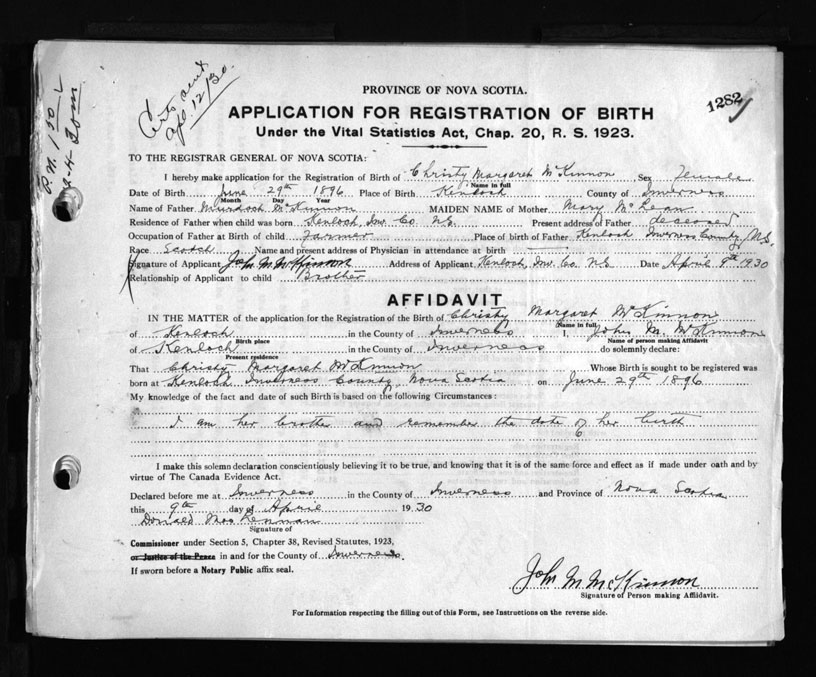 Certs sent
Apl. 12/30.
P.M. 150
PROVINCE OF NOVA SCOTIA.
1282
APPLICATION FOR REGISTRATION OF BIRTH
Under the Vital Statistics Act, Chap. 20, R. S. 1923.
TO THE REGISTRAR GENERAL OF NOVA SCOTIA:
I hereby make application for the Registration of Birth of Christy Margaret McKinnon Sex Female
Name in full
Date of Birth June 29th 1896 Place of Birth Kenloch County of Inverness
Month Day Year
Name of Father Murdoch McKinnon MAIDEN NAME of Mother Mary McLean
Residence of Father when child was born Kenloch, Inv. Co. N.S. Present address of Father deceased
Occupation of Father at Birth of child Farmer Place of birth of Father Kenloch Inverness County N.S.
Race Scotch Name and present address of Physician in attendance at birth
Signature of Applicant John M. McKinnon Address of Applicant Kenloch, Inv. Co. N.S. Date April 9th 1930
Relationship of Applicant to child Brother
AFFIDAVIT
IN THE MATTER of the application for the Registration of the Birth of Christy Margaret McKinnon
(Name in full)
of Kenloch in the County of Inverness I, John M. McKinnon
Birth place Name of person making Affidavit
of Kenloch in the County of Inverness do solemnly declare:
Present residence
That Christy Margaret McKinnon Whose Birth is sought to be registered was
born at Kenloch Inverness County, Nova Scotia on June 29th 1896
My knowledge of the fact and date of such Birth is based on the following Circumstances:
I am her brother and remember the date of her birth
I make this solemn declaration conscientiously believing it to be true, and knowing that it is of the same force and effect as if made under oath and by
virtue of The Canada Evidence Act.
Declared before me at Inverness in the County of Inverness and Province of Nova Scotia
this 9th day of April 1930
Donald
Signature of
Commissioner under Section 5, Chapter 38, Revised Statutes, 1923,
or Justice of the Peace in and for the County of Inverness.
If sworn before a Notary Public affix seal.
John M. McKinnon
Signature of Person making Affidavit.
For Information respecting the filling out of this Form, see Instructions on the reverse side.